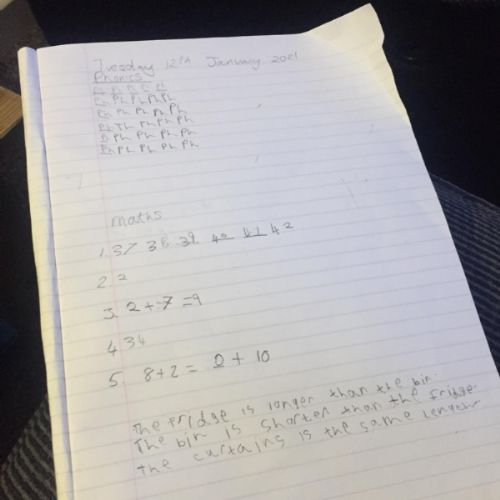 Tuesday 12th January 2021
Phonics
Ph Ph Ph Ph Ph
Ph Ph Ph Ph Ph
Ph Ph Ph Ph
Ph Th Ph Ph Ph
Ph Ph Ph Ph Ph
Ph Ph Ph Ph Ph
maths
1. 37 38 39 40 41 42
2. 2
3. 2 + 7 = 9
4. 34
5. 8 + 2 = 0 + 10
The fridge is longer than the bin.
The bin is shorter than the fridge.
the curtains is the same length